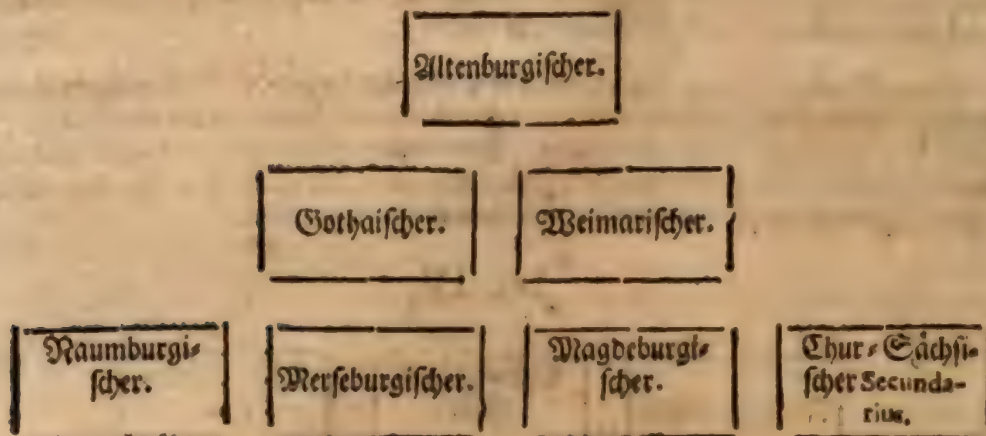 Altenburgischer.
Gothaischer.
Weimarischer.
Naumburgi⸗
scher.
Merseburgischer.
Magdeburgi⸗
scher.
Chur⸗Sächsi⸗
scher Secunda-
rius.